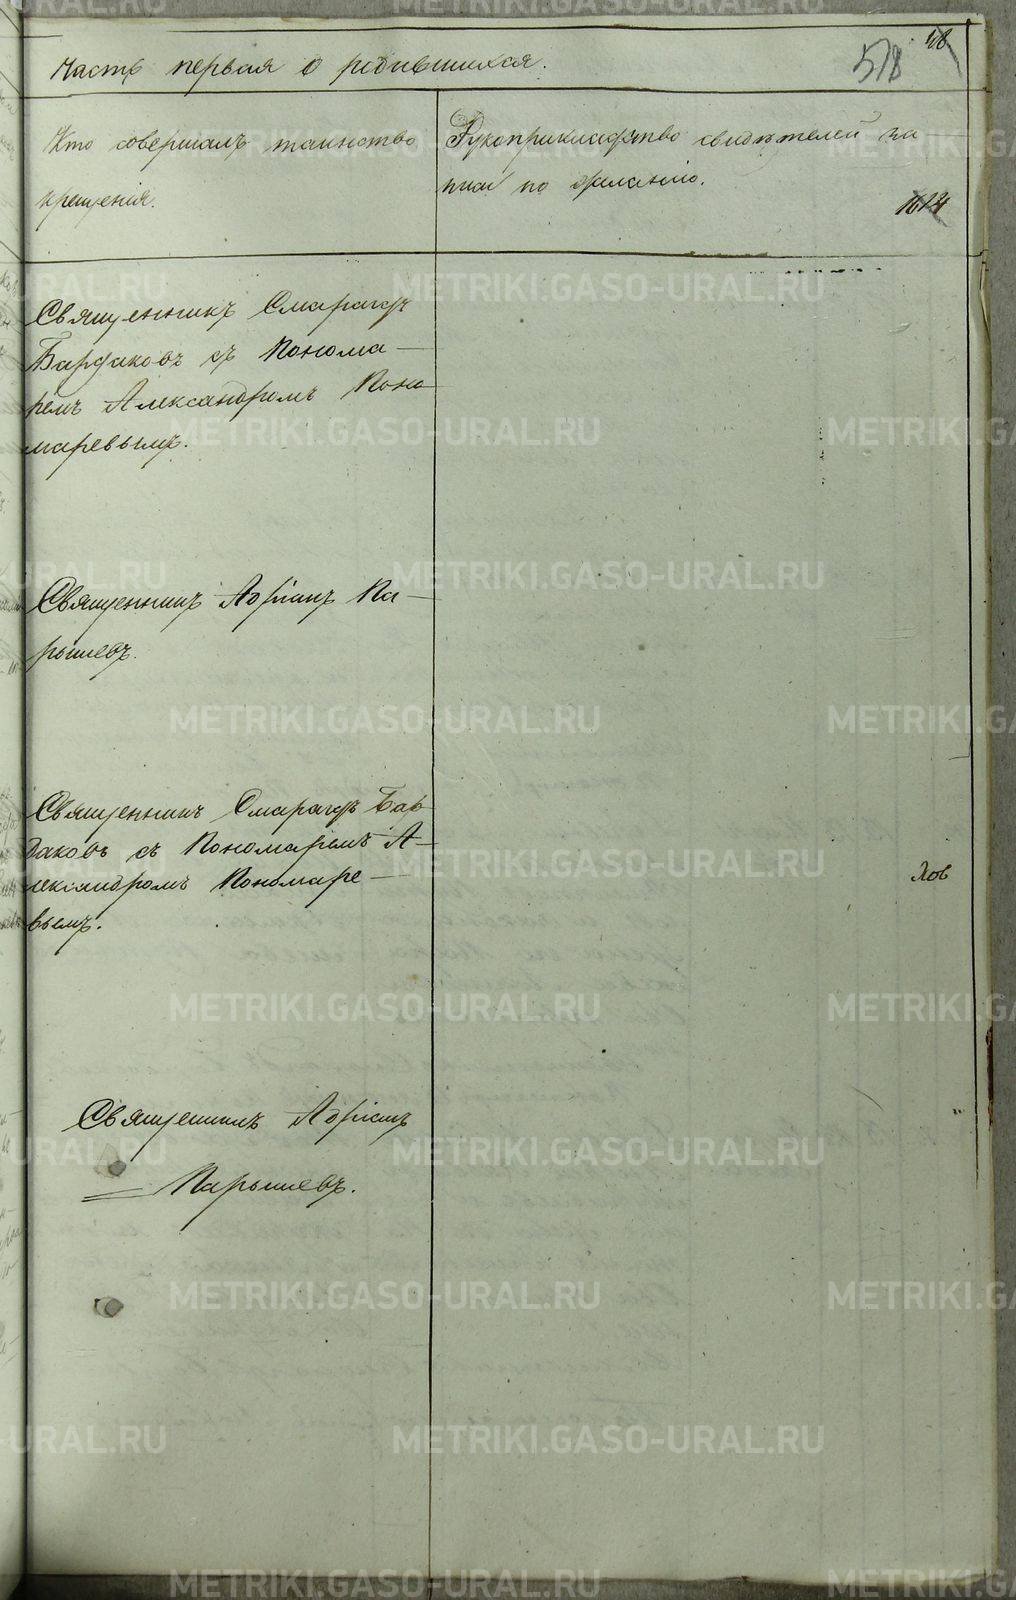 Часть первая о родившихся.
518
Кто совершалъ таинство
крещенія.
Рукоприкладство свидѣтелей за
писи по желанію.
Священникъ Смарагдъ
Бардаковъ съ Понома–
ремъ Александромъ Поно
маревымъ.
Священникъ Адріанъ Па–
рышевъ.
Священникъ Смарагдъ Бар
даковъ съ Пономаремъ А–
лександромъ Пономаре–
вымъ.
Священникъ Адріанъ
Парышевъ.
METRIKI.GASO-URAL.RU